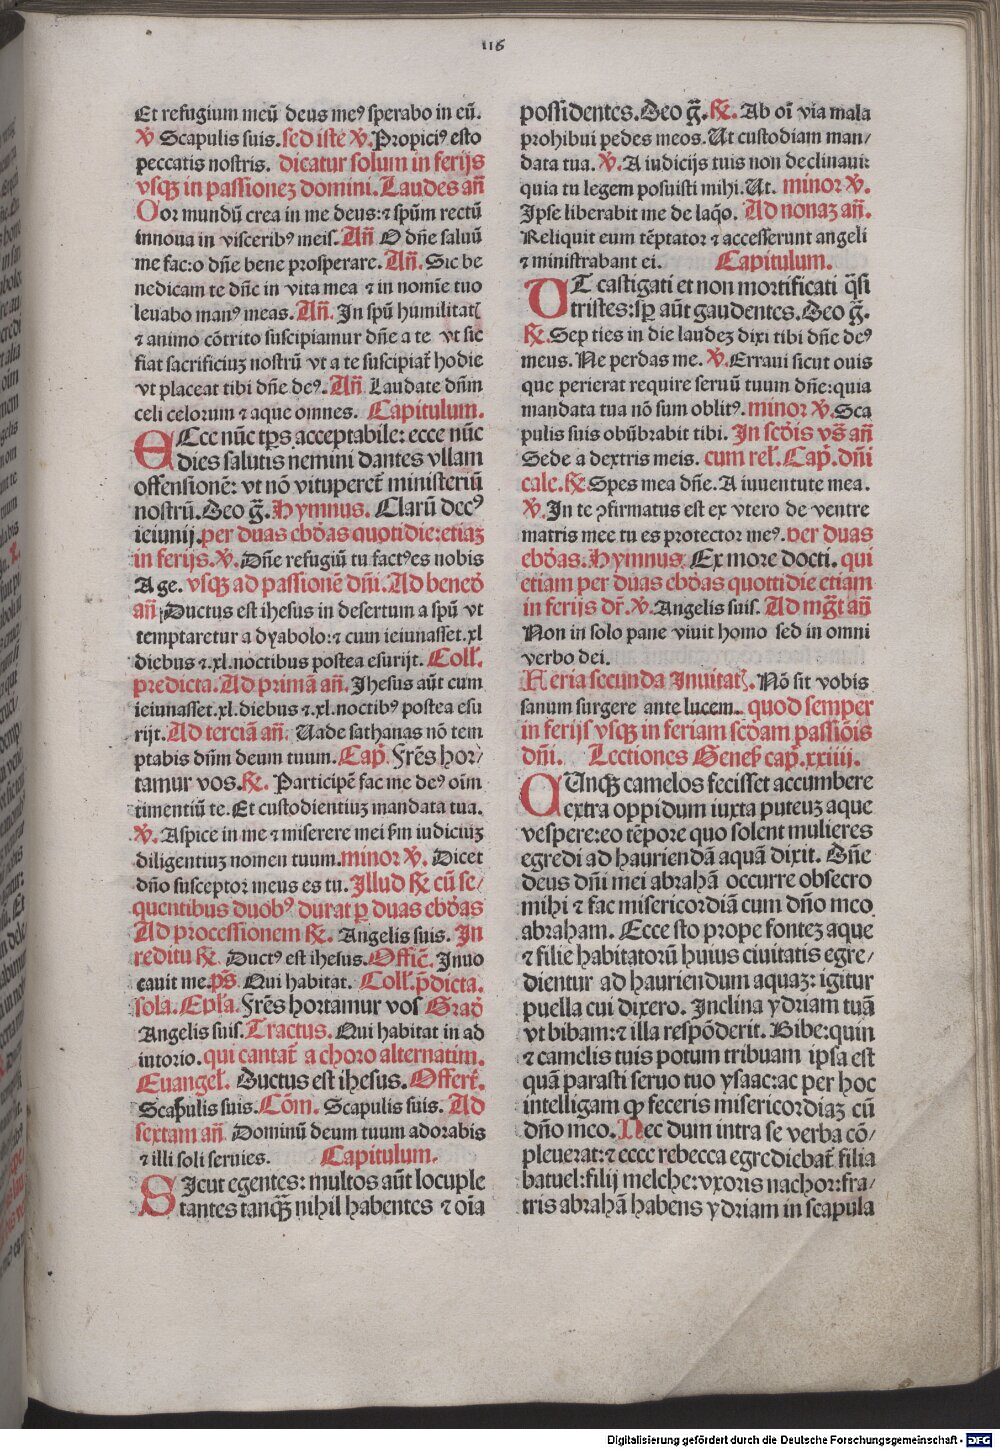 116
Et refugium meū deus meꝰ sperabo in eū.
℣ Scapulis suis. sed iste ℣. Propiciꝰ esto
peccatis nostris. dicatur solum in ferijs
vsqꝫ in passionez domini. Laudes añ
Cor mundū crea in me deus: ⁊ spūm rectū
innoua in visceribꝰ meis. Añ O dñe saluū
me fac: o dñe bene prosperare. Añ. Sic be
nedicam te dñe in vita mea ⁊ in nomīe tuo
leuabo manꝰ meas. Añ. In spū humilitatꝭ
⁊ animo cōtrito suscipiamur dñe a te vt sic
fiat sacrificiuz nostrū vt a te suscipiat̄ hodie
vt placeat tibi dñe deꝰ. Añ. Laudate dñm
celi celorum ⁊ aque omnes. Capitulum.
ECce nūc tp̄s acceptabile: ecce nūc
dies salutis nemini dantes vllam
offensionē: vt nō vituperet̄ ministeriū
nostrū. Deo g̃. Hymnus. Clarū decꝰ
ieiunij. per duas ebdo̅as quotidie: etiaz
in ferijs. ℣. Dñe refugiū tu factꝰ es nobis
Age. vsqꝫ ad passionē dñi. Ad bened̄
añ Ductus est ihesus in desertum a spū vt
temptaretur a dyabolo: ⁊ cum ieiunasset .xl
diebus ⁊ .xl. noctibus postea esurijt. Coll̄.
predicta. Ad primā añ. Ihesus aūt cum
ieiunasset .xl. diebus ⁊ .xl. noctibꝰ postea esu
rijt. Ad terciā añ. Uade sathanas nō tem
ptabis dñm deum tuum. Cap̄. Fr̄es hor/
tamur vos. ℟. Participē fac me deꝰ oīm
timentiū te. Et custodientiuz mandata tua.
℣. Aspice in me ⁊ miserere mei s̄m iudiciuz
diligentiuz nomen tuum. minor ℣. Dicet
dño susceptor meus es tu. Illud ℟ cū se/
quentibus duobꝰ durat ꝑ duas ebd̄as
Ad processionem ℟. Angelis suis. In
reditu ℟ Ductꝰ est ihesus. Offic̄. Inuo
cauit me. p̄s. Qui habitat. Coll̄. p̄dicta.
sola. Ep̄la. Fr̄es hortamur vos Grad̄
Angelis suis. Tractus. Qui habitat in ad
iutorio. qui cantat̄ a choro alternatim.
Euangel̄. Ductus est ihesus. Offert̄.
Scapulis suis. Cōm. Scapulis suis. Ad
sextam añ Dominū deum tuum adorabis
⁊ illi soli seruies. Capitulum.
SIcut egentes: multos aūt locuple
tantes tanqꝫ̄ nihil habentes ⁊ oīa
possidentes. Deo g̃. ℟. Ab oī via mala
prohibui pedes meos. Ut custodiam man/
data tua. ℣. A iudicijs tuis non declinaui:
quia tu legem posuisti mihi. Ut. minor ℣.
Ipse liberabit me de laq̄o. Ad nonaz añ.
Reliquit eum tēptator ⁊ accesserunt angeli
⁊ ministrabant ei. Capitulum.
UT castigati et non mortificati q̄si
tristes: sꝑ aūt gaudentes. Deo g̃.
℟. Sep ties in die laudez dixi tibi dñe deꝰ
meus. Ne perdas me. ℣. Erraui sicut ouis
que perierat require seruū tuum dñe: quia
mandata tua nō sum oblitꝰ. minor ℣. Sca
pulis suis obūbrabit tibi. In scd̄is vs̄ añ
Sede a dextris meis. cum rel̄. Cap̄. dñi
cale. ℟. Spes mea dñe. A iuuentute mea.
℣. In te ꝯfirmatus est ex vtero de ventre
matris mee tu es protector meꝰ. per duas
ebd̄as. Hymnus. Ex more docti. qui
etiam per duas ebd̄as quottidie etiam
in ferijs dr̄. ℣. Angelis suis. Ad mḡt añ
Non in solo pane viuit homo sed in omni
verbo dei.
Feria secunda Inuitatꝭ. Nō sit vobis
sanum surgere ante lucem. quod semper
in ferijs vsqꝫ in feriam scd̄am passiōis
dñi. Lectiones Genes̄ cap̄. xxiiii.
CUnqꝫ camelos fecisset accumbere
extra oppidum iuxta puteuz aque
vespere: eo tēpore quo solent mulieres
egredi ad hauriendā aquā dixit. Dñe
deus dñi mei abrahā occurre obsecro
mihi ⁊ fac misericordiā cum dño meo
abraham. Ecce sto prope fontez aque
⁊ filie habitatorū huius ciuitatis egre/
dientur ad hauriendum aquaz: igitur
puella cui dixero. Inclina ydriam tuā
vt bibam: ⁊ illa respōderit. Bibe: quin
⁊ camelis tuis potum tribuam ipsa est
quā parasti seruo tuo ysaac: ac per hoc
intelligam ꝙ feceris misericordiaz cū
dño meo. Nec dum intra se verba cō/
pleuerat: ⁊ ecce rebecca egrediebat̄ filia
batuel: filij melche: vxoris nachor: fra/
tris abrahā habens ydriam in scapula
Digitalisierung gefördert durch die Deutsche Forschungsgemeinschaft - DFG